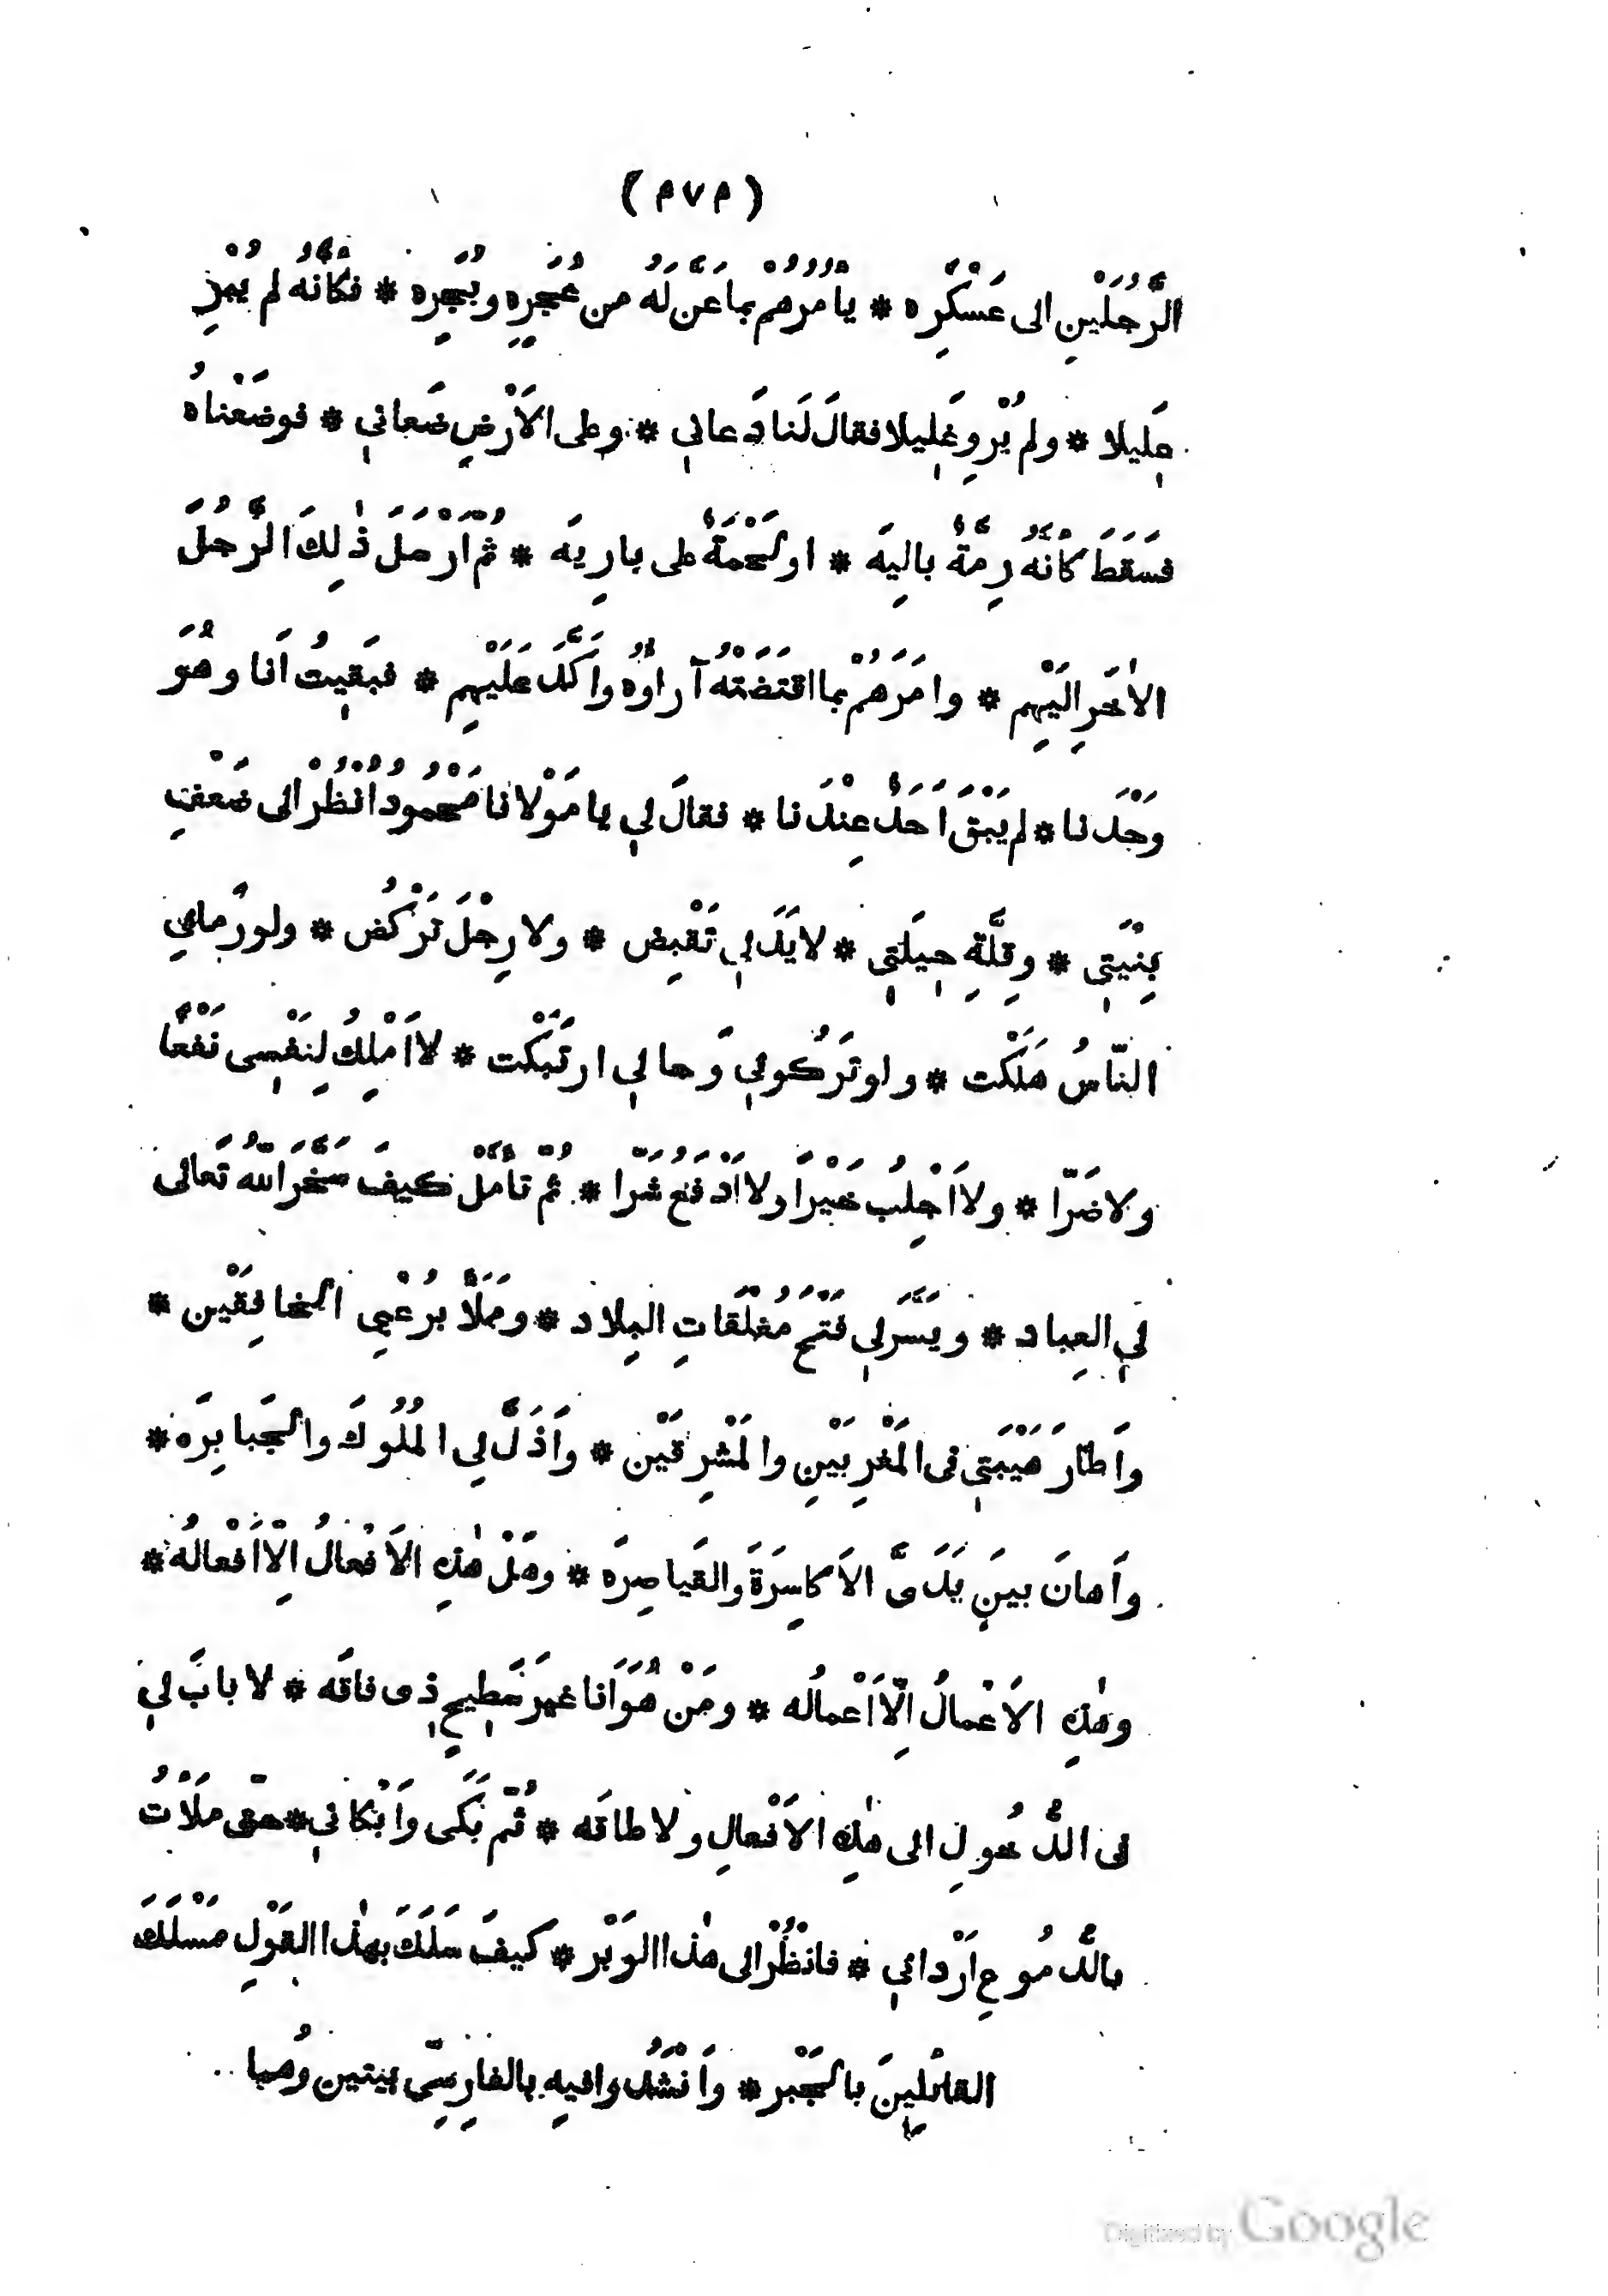 (٣٧٣)
الرَّجُلَيْنِ الى عَسْكَرِه * يَأْمُرُهُمْ بما عَنَّ لَهُ من عُجَرِهِ وبُجَرِه * فكَأَنَّهُ لم يُبْرِ
عَلِيلا * ولم يُرْوِ غَلِيلا فقالَ لَنا دَعانِي * وعلى الاَرْضِ ضَعانِي * فوضَعْناهُ
فسَقَطَ كَأَنَّهُ رِمَّةٌ بالِيَه * او لَحْمَةٌ على بارِيَه * ثُمَّ اَرْسَلَ ذٰلِكَ الرَّجُلَ
الاٰخَرَ اِلَيْهِم * وامَرَهُمْ بما اقتَضَتْهُ آراؤُهُ واَكَّدَ عَلَيْهِم * فبَقِيتُ اَنا وهُوَ
وَحْدَنا * لم يَبْقَ اَحَدٌ عِنْدَنا * فقالَ لي يا مَوْلانا مَحْمُودُ انْظُرْ الى ضَعْفِ
بِنْيَتِي * وقِلَّةِ حِيلَتِي * لا يَدَ لِي تَقْبِض * ولا رِجْلَ تَرْكُض * ولو رَمانِي
النّاسُ هَلَكْت * ولو تَرَكُونِي وَحالِي ارتَبَكْت * لا اَمْلِكُ لِنَفْسِى نَفْعًا
ولا ضَرّا * ولا اَجْلِبُ خَيْرًا ولا اَدْفَعُ شَرّا * ثُمَّ تأَمَّلْ كيفَ سَخَّرَ اللّٰهُ تَعالى
لِي العِباد * ويَسَّرَ لِي فَتْحَ مُغْلَقاتِ البِلاد * ومَلَأَ بِرُعْبِي الخافِقَيْن *
واَطارَ هَيْبَتِي فى المَغْرِبَيْنِ والمَشْرِقَيْن * واَذَلَّ لِي المُلُوكَ والجَبابِرَه *
واَهانَ بينَ يَدَىَّ الاَكاسِرَةَ والقَياصِرَه * وهَلْ هٰذِهِ الاَفْعالُ اِلّا اَفْعالُه *
وهٰذِهِ الاَعْمالُ اِلّا اَعْمالُه * ومَنْ هُوَ اَنا غيرَ سَطِيحٍ ذِى فاقَه * لا بابَ لِي
فى الدُّخُولِ الى هٰذِهِ الاَفْعالِ ولا طاقَه * ثُمَّ بَكَى واَبْكانِي * حتّى مَلَأْتُ
بالدُّمُوعِ اَرْدانِي * فانظُرْ الى هٰذا الوَبْر * كيفَ سَلَكَ بهٰذا القَوْلِ مَسْلَكَ
القائلِينَ بالجَبْر * واَنْشَدُوا فيهِ بالفارِسِىِّ بيتين وهُما
Digitized by Google